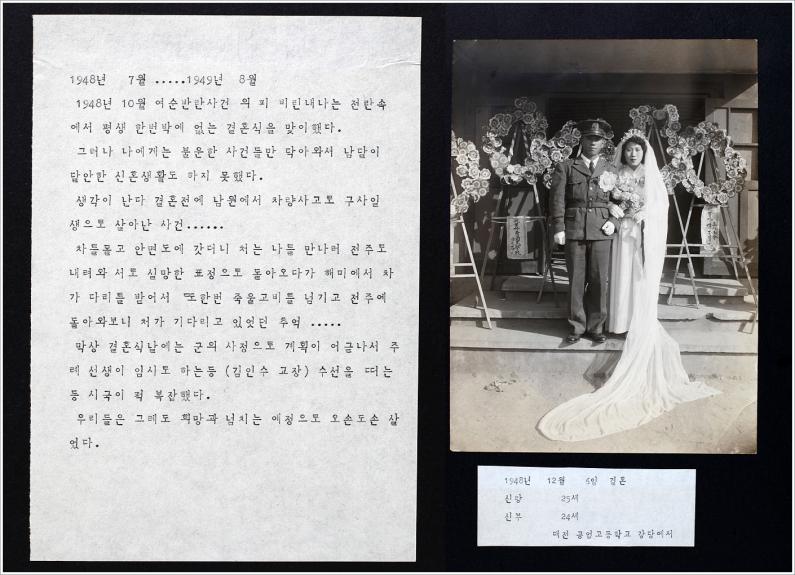 1948년 7월 .....1949년 8월
1948년 10월 여순반란사건 의 피 비린내나는 전란속
에서 평생 한번밖에 없는 결혼식을 맞이했다.
그러나 나에게는 불운한 사건들만 닥아와서 남달이
달안한 신혼생활도 하지 못했다.
생각이 난다 결혼전에 남원에서 차량사고로 구사일
생으로 살아난 사건......
차를몰고 안면도에 갓더니 처는 나를 만나러 전주로
내려와 서로 실망한 표정으로 돌아오다가 해미에서 차
가 다리를 받어서 또한번 죽을고비를 넘기고 전주에
돌아와보니 처가 기다리고 있엇던 추억 .....
막상 결혼식날에는 군의 사정으로 계획이 어글나서 주
레 선생이 임시로 하는등 (김인수 교장) 수선을 떠는
등 시국이 퍽 복잡했다.
우리들은 그레도 희망과 넘치는 애정으로 오손도손 살
었다.
1948년 12월 5일 결혼
신랑 25세
신부 24세
대전 공업고등학교 강당에서